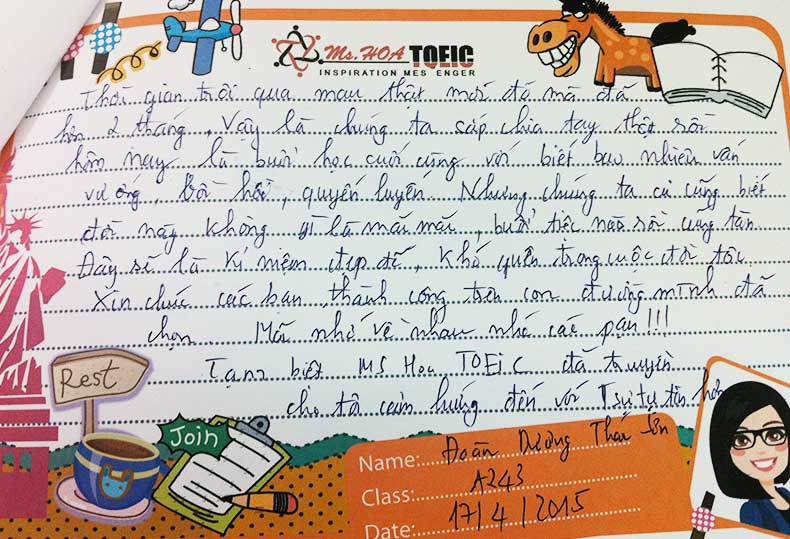 Ms.HOA TOEIC
INSPIRATION MES ENGER
Thời gian trôi qua mau thật mới đó mà đã
hơn 2 tháng, vậy là chúng ta sắp chia tay thật rồi
hôm nay là buổi học cuối cùng với biết bao nhiêu vấn
vương, bồi hồi, quyến luyến. Nhưng chúng ta ai cũng biết
đời này không gì là mãi mãi, buổi tiệc nào rồi cũng tàn.
Đây sẽ là kỉ niệm đẹp đẽ, khó quên trong cuộc đời tôi.
Xin chúc các bạn thành công trên con đường mình đã
chọn. Mãi nhớ về nhau nhé các bạn!!!
Tạm biệt MS Hoa TOEIC đã truyền
cho tô cảm hứng đến với sự tự tin hơn
Rest
Join
Name: Đoàn Dương Thái Sơn
Class: A243
Date: 17/4/2015